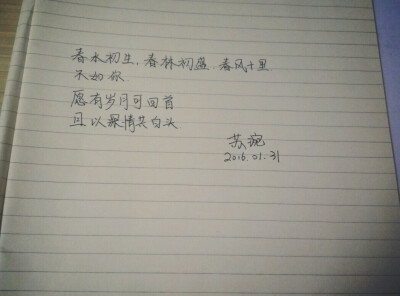 春水初生,春林初盛,春风十里
不如你
愿有岁月可回首
且以深情共白头
苏琬
2016.01.31